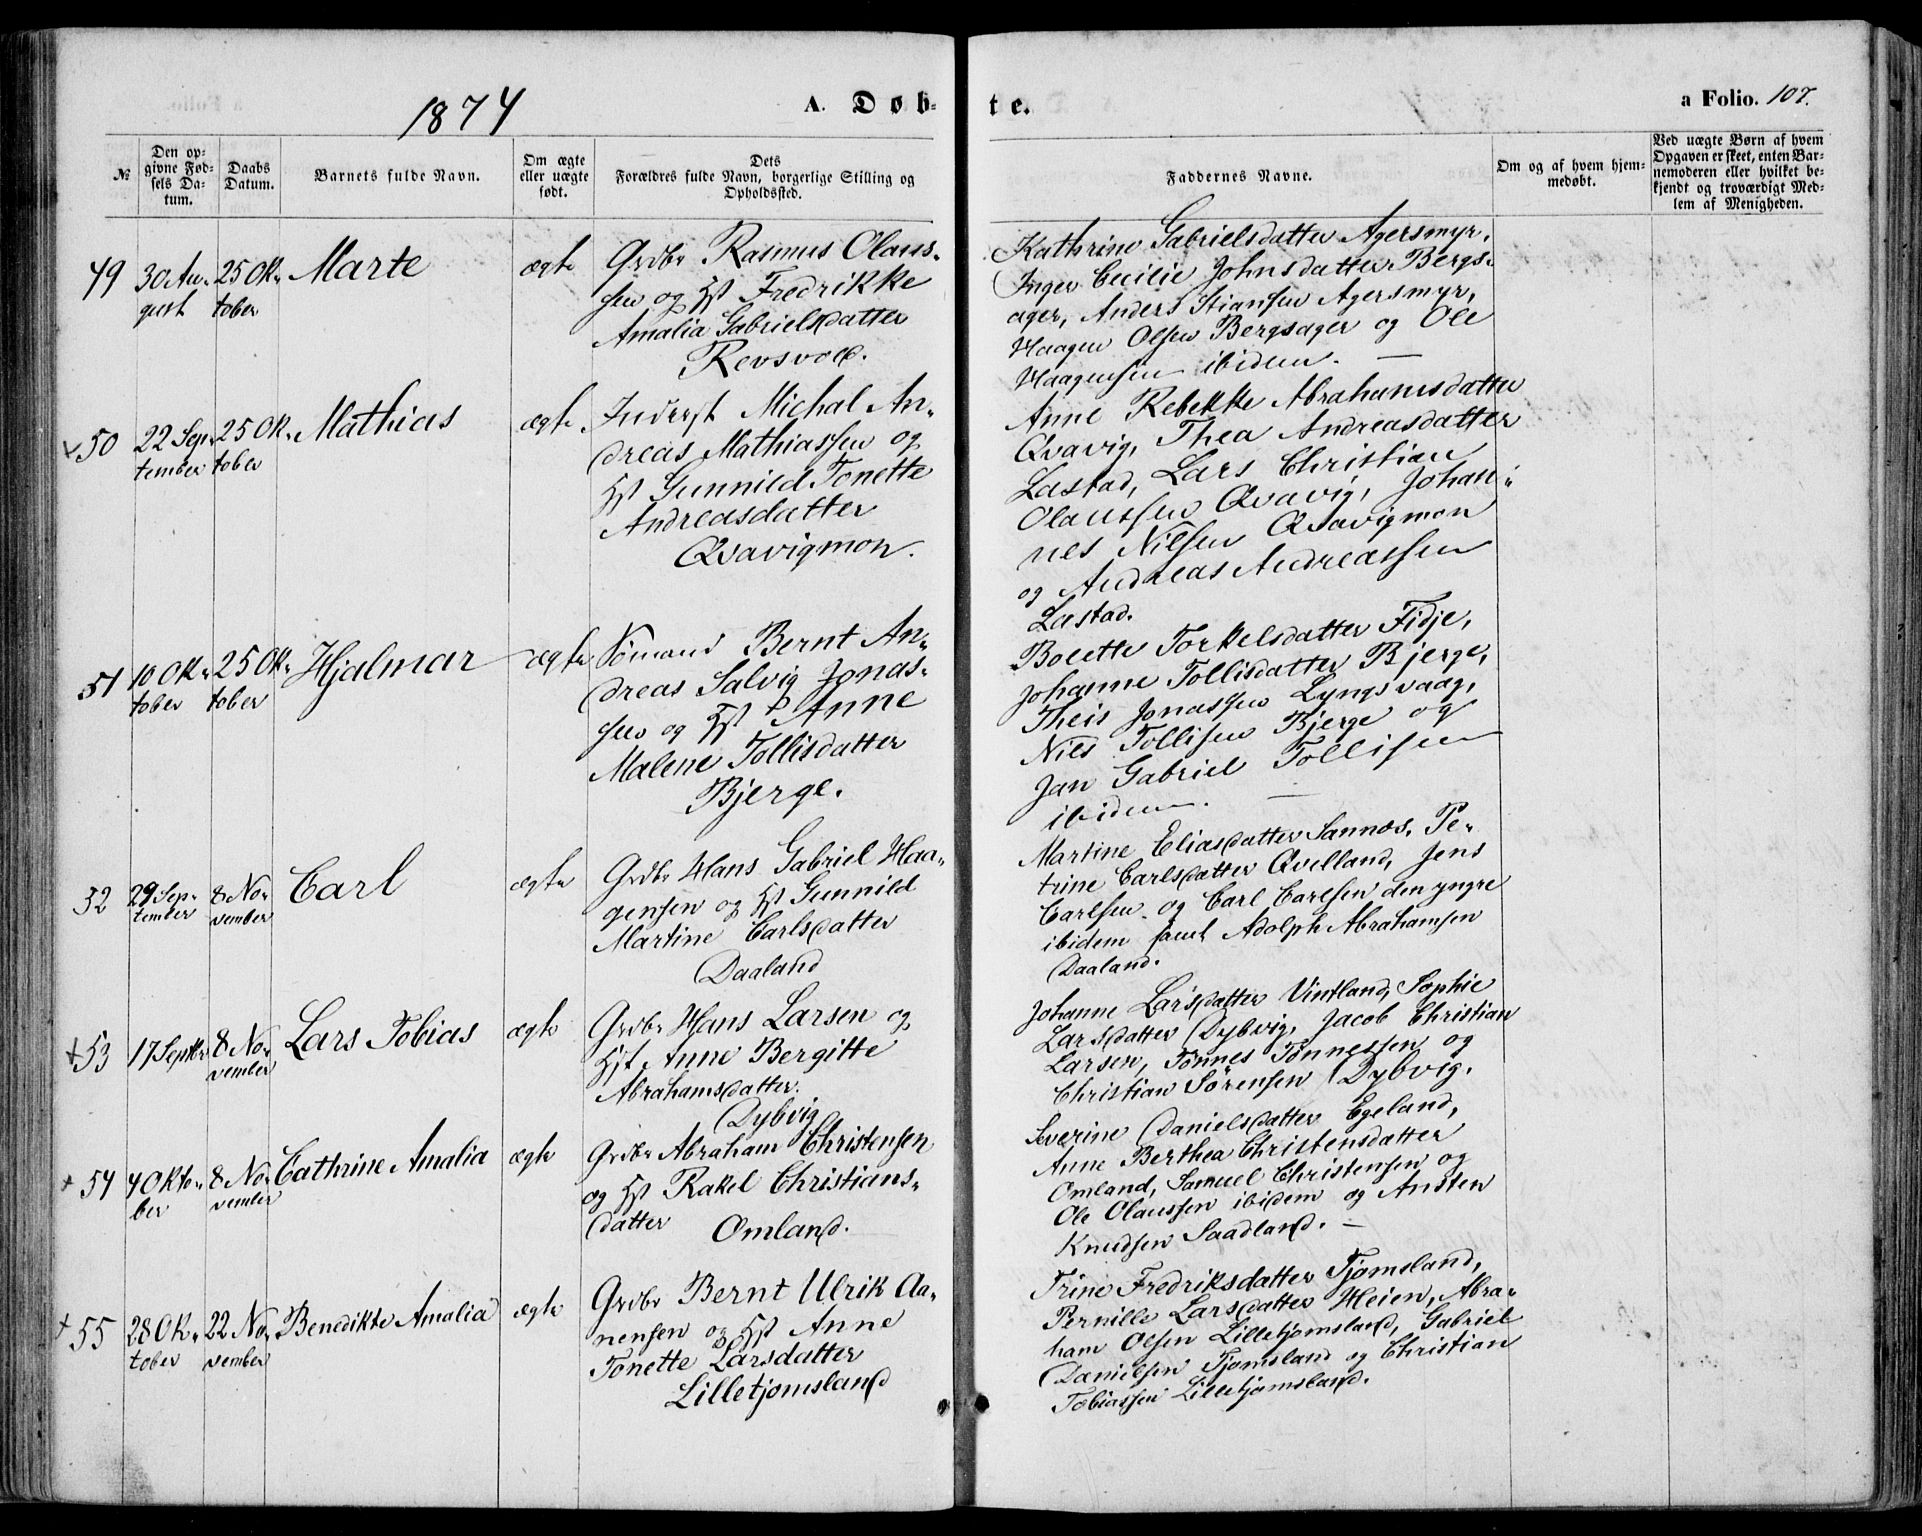 1874
A. Døb-
te.
a Folio. 107.
№
Den op-
givne Fød-
sels Da-
tum.
Daabs
Datum.
Barnets fulde Navn.
Om ægte
eller uægte
født.
Dets
Forældres fulde Navn, borgerlige Stilling og
Opholdssted.
Faddernes Navne.
Om og af hvem hjem-
medøbt.
Ved uægte Børn af hvem
Opgaven er skeet, enten Bar-
nemoderen eller hvilket be-
kjendt og troværdigt Med-
lem af Menigheden.
49
30 Au-
gust
25 Ok-
tober
Marte
ægte
Grdbr Rasmus Olaus-
sen og Hst Fredrikke
Amalia Gabrielsdatter
Revsvold.
Kathrine Gabrielsdatter Agersmyr,
Inger Cecilie Johnsdatter Bergs-
ager, Anders Stiansen Agersmyr,
Haagen Olsen Bergsager og Ole
Haagensen ibidem. —
+ 50
22 Sep-
tember
25 Ok-
tober
Mathias
ægte
Inderst Michal An-
dreas Mathiassen og
Hst Gunnild Tonette
Andreasdatter
Qvavigmon.
Anne Rebekke Abrahamsdatter
Qvavig, Thea Andreasdatter
Lastad, Lars Christian
Olaussen Qvavig, Johan-
nes Nilsen Qvavigmon
og Andreas Andreassen
Lastad.
51
10 Ok-
tober
25 Ok-
tober
Hjalmar
ægte
Sömand Bernt An-
dreas Salvig Jonas-
sen og Hst Anne
Malene Tollisdatter
Bjerge.
Boletto Torkelsdatter Fidje,
Johanne Tollisdatter Bjerge,
Theis Jonassen Lyngsvaag,
Nils Tollisen Bjerge og
Jan Gabriel Tollisen
ibidem. —
52
29 Sep-
tember
8 No-
vember
Carl
ægte
Grdbr Hans Gabriel Haa-
gensen og Hst Gunnild
Martine Carlsdatter
Daaland
Martine Eliasdatter Sannæs, Pe-
trine Carlsdatter Qvelland, Jens
Carlsen og Carl Carlsen den yngre
ibidem samt Adolph Abrahamsen
Daaland.
+ 53
17 Septbr
8 No-
vember
Lars Tobias
ægte
Grdbr Hans Larsen og
Hst Anne Bergitte
Abrahamsdatter.
Dybvig
Johanne Larsdatter Vintland, Sophie
Larsdatter Dybvig, Jacob Christian
Larsen, Tönnes Tönnessen og
Christian Sörensen Dybvig.
+ 54
4 Okto-
ber
8 No-
vember
Cathrine Amalia
ægte
Grdbr Abraham Christensen
og Hst Rakel Christians-
datter
Omland.
Severine Danielsdatter Egeland,
Anne Berthea Christensdatter
Omland, Samuel Christensen og
Ole Olaussen ibidem og Ansten
Knudsen Saadland. —
+ 55
28 Ok-
tober
22 No-
vember
Benedikte Amalia
ægte
Grdbr Bernt Ulrik Aa-
nensen og Hst Anne
Tonette Larsdatter
Lilletjomsland
Trine Fredriksdatter Tjomsland,
Pernille Larsdatter Heien, Abra-
ham Olsen Lilletjomsland, Gabriel
Danielsen Tjomsland og Christian
Tobiassen Lilletjomsland.